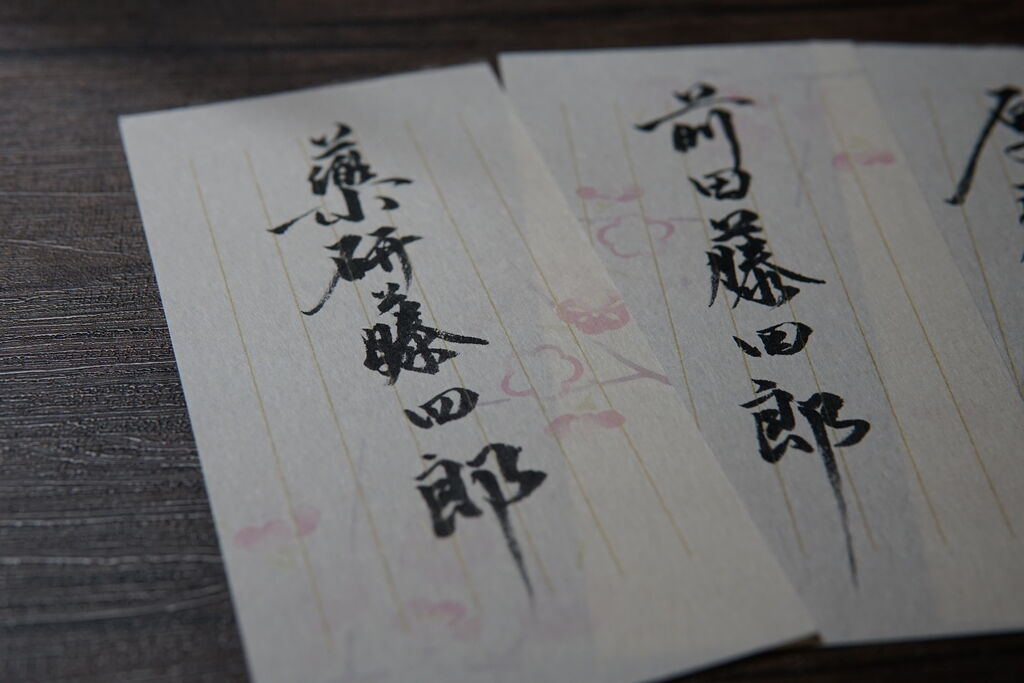 前田藤四郎
藥研藤四郎